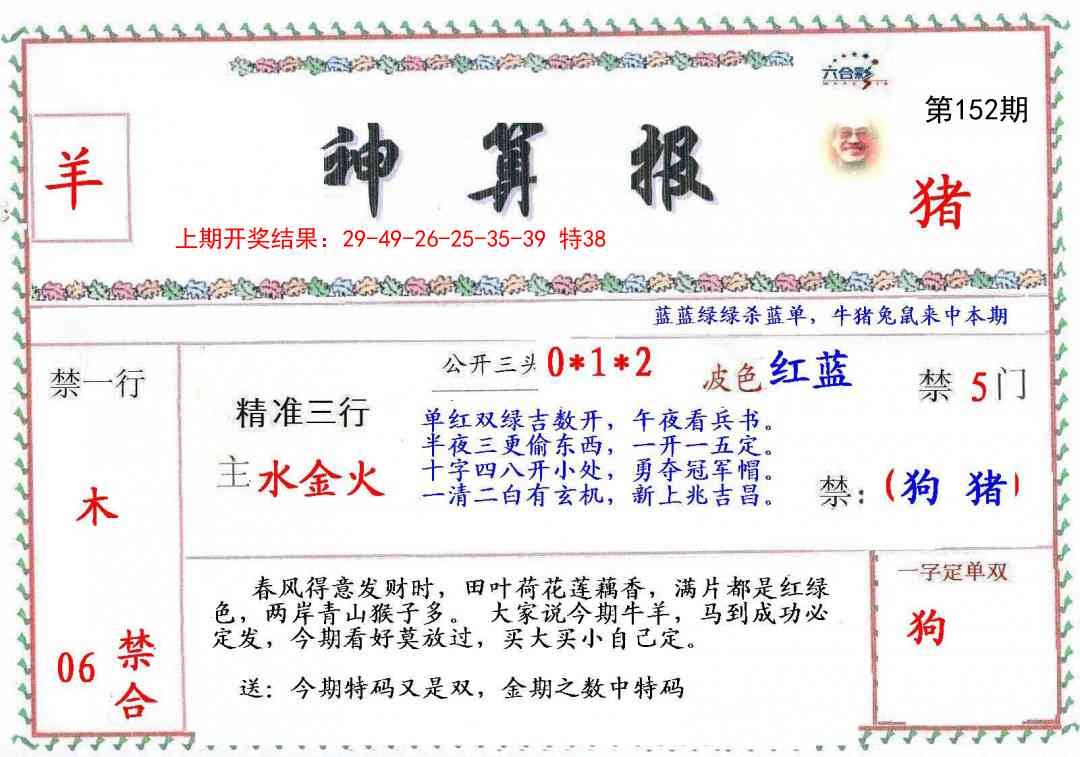 六合彩
第152期
羊
神算报
猪
上期开奖结果：29-49-26-25-35-39 特38
蓝蓝绿绿杀蓝单，牛猪兔鼠来中本期
禁一行
公开三头 0*1*2
波色 红蓝
禁 5门
精准三行
主 水金火
单红双绿吉数开，午夜看兵书。
半夜三更偷东西，一开一五定。
十字四八开小处，勇夺冠军帽。
一清二白有玄机，新上兆吉昌。
禁：(狗 猪)
木
春风得意发财时，田叶荷花莲藕香，满片都是红绿
色，两岸青山猴子多。 大家说今期牛羊，马到成功必
定发，今期看好莫放过，买大买小自己定。
送：今期特码又是双，金期之数中特码
一字定单双
狗
06 禁合